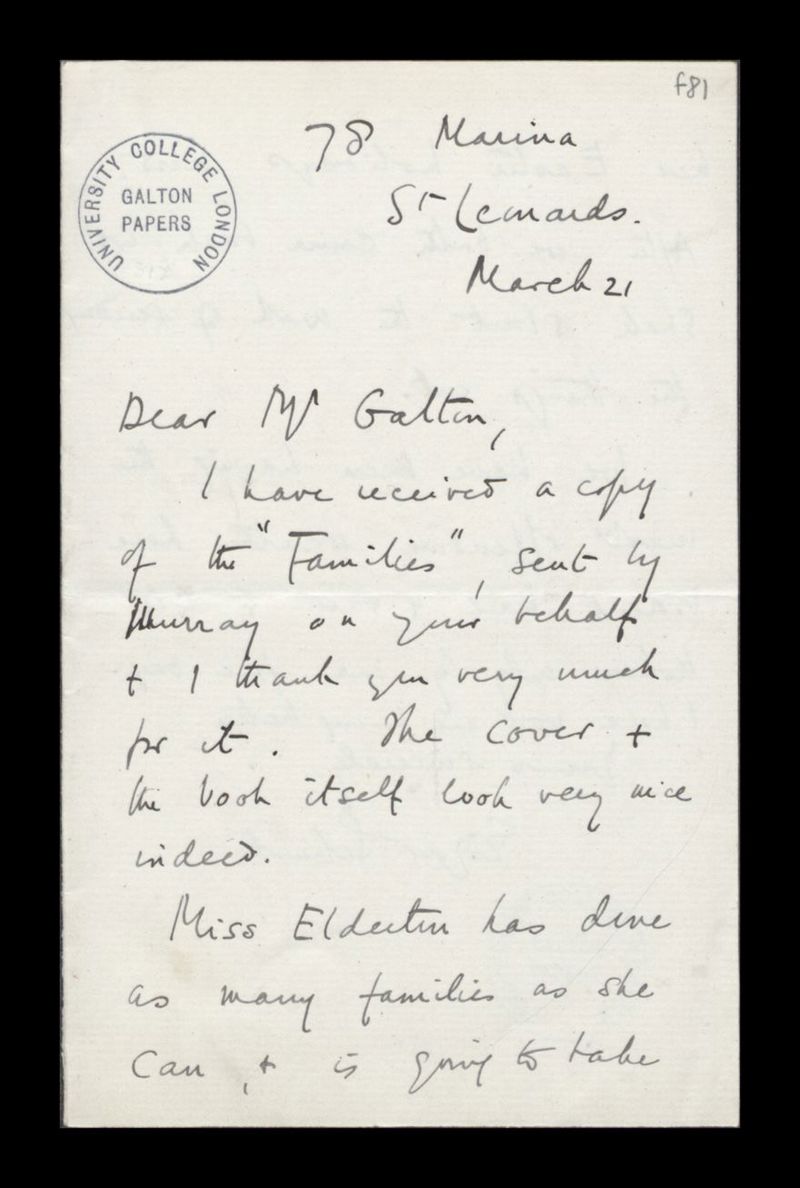 f81
UNIVERSITY COLLEGE LONDON
GALTON
PAPERS
78 Marina
St Leonards.
March 21
Dear Mr Galton,
I have received a copy
of the "Families", sent by
Murray on your behalf
+ I thank you very much
for it. The cover +
the book itself look very nice
indeed.
Miss Elderton has done
as many families as she
can, + is going to take